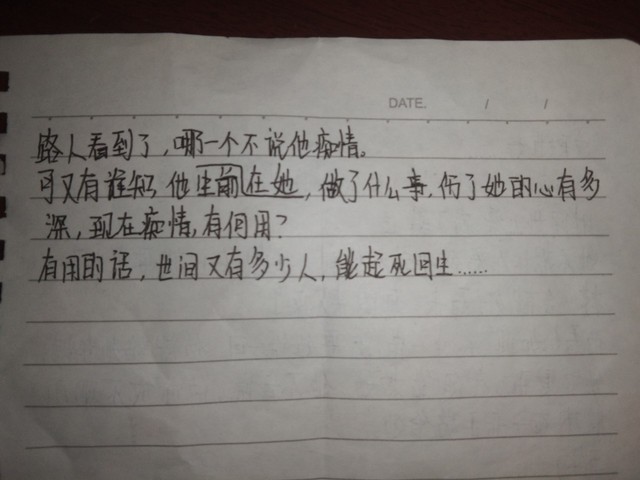 DATE. / /
路人看到了,哪一个不说他痴情。
可又有谁知,他生前在她,做了什么事,伤了她的心有多
深,现在痴情,有何用?
有用的话,世间又有多少人,能起死回生……